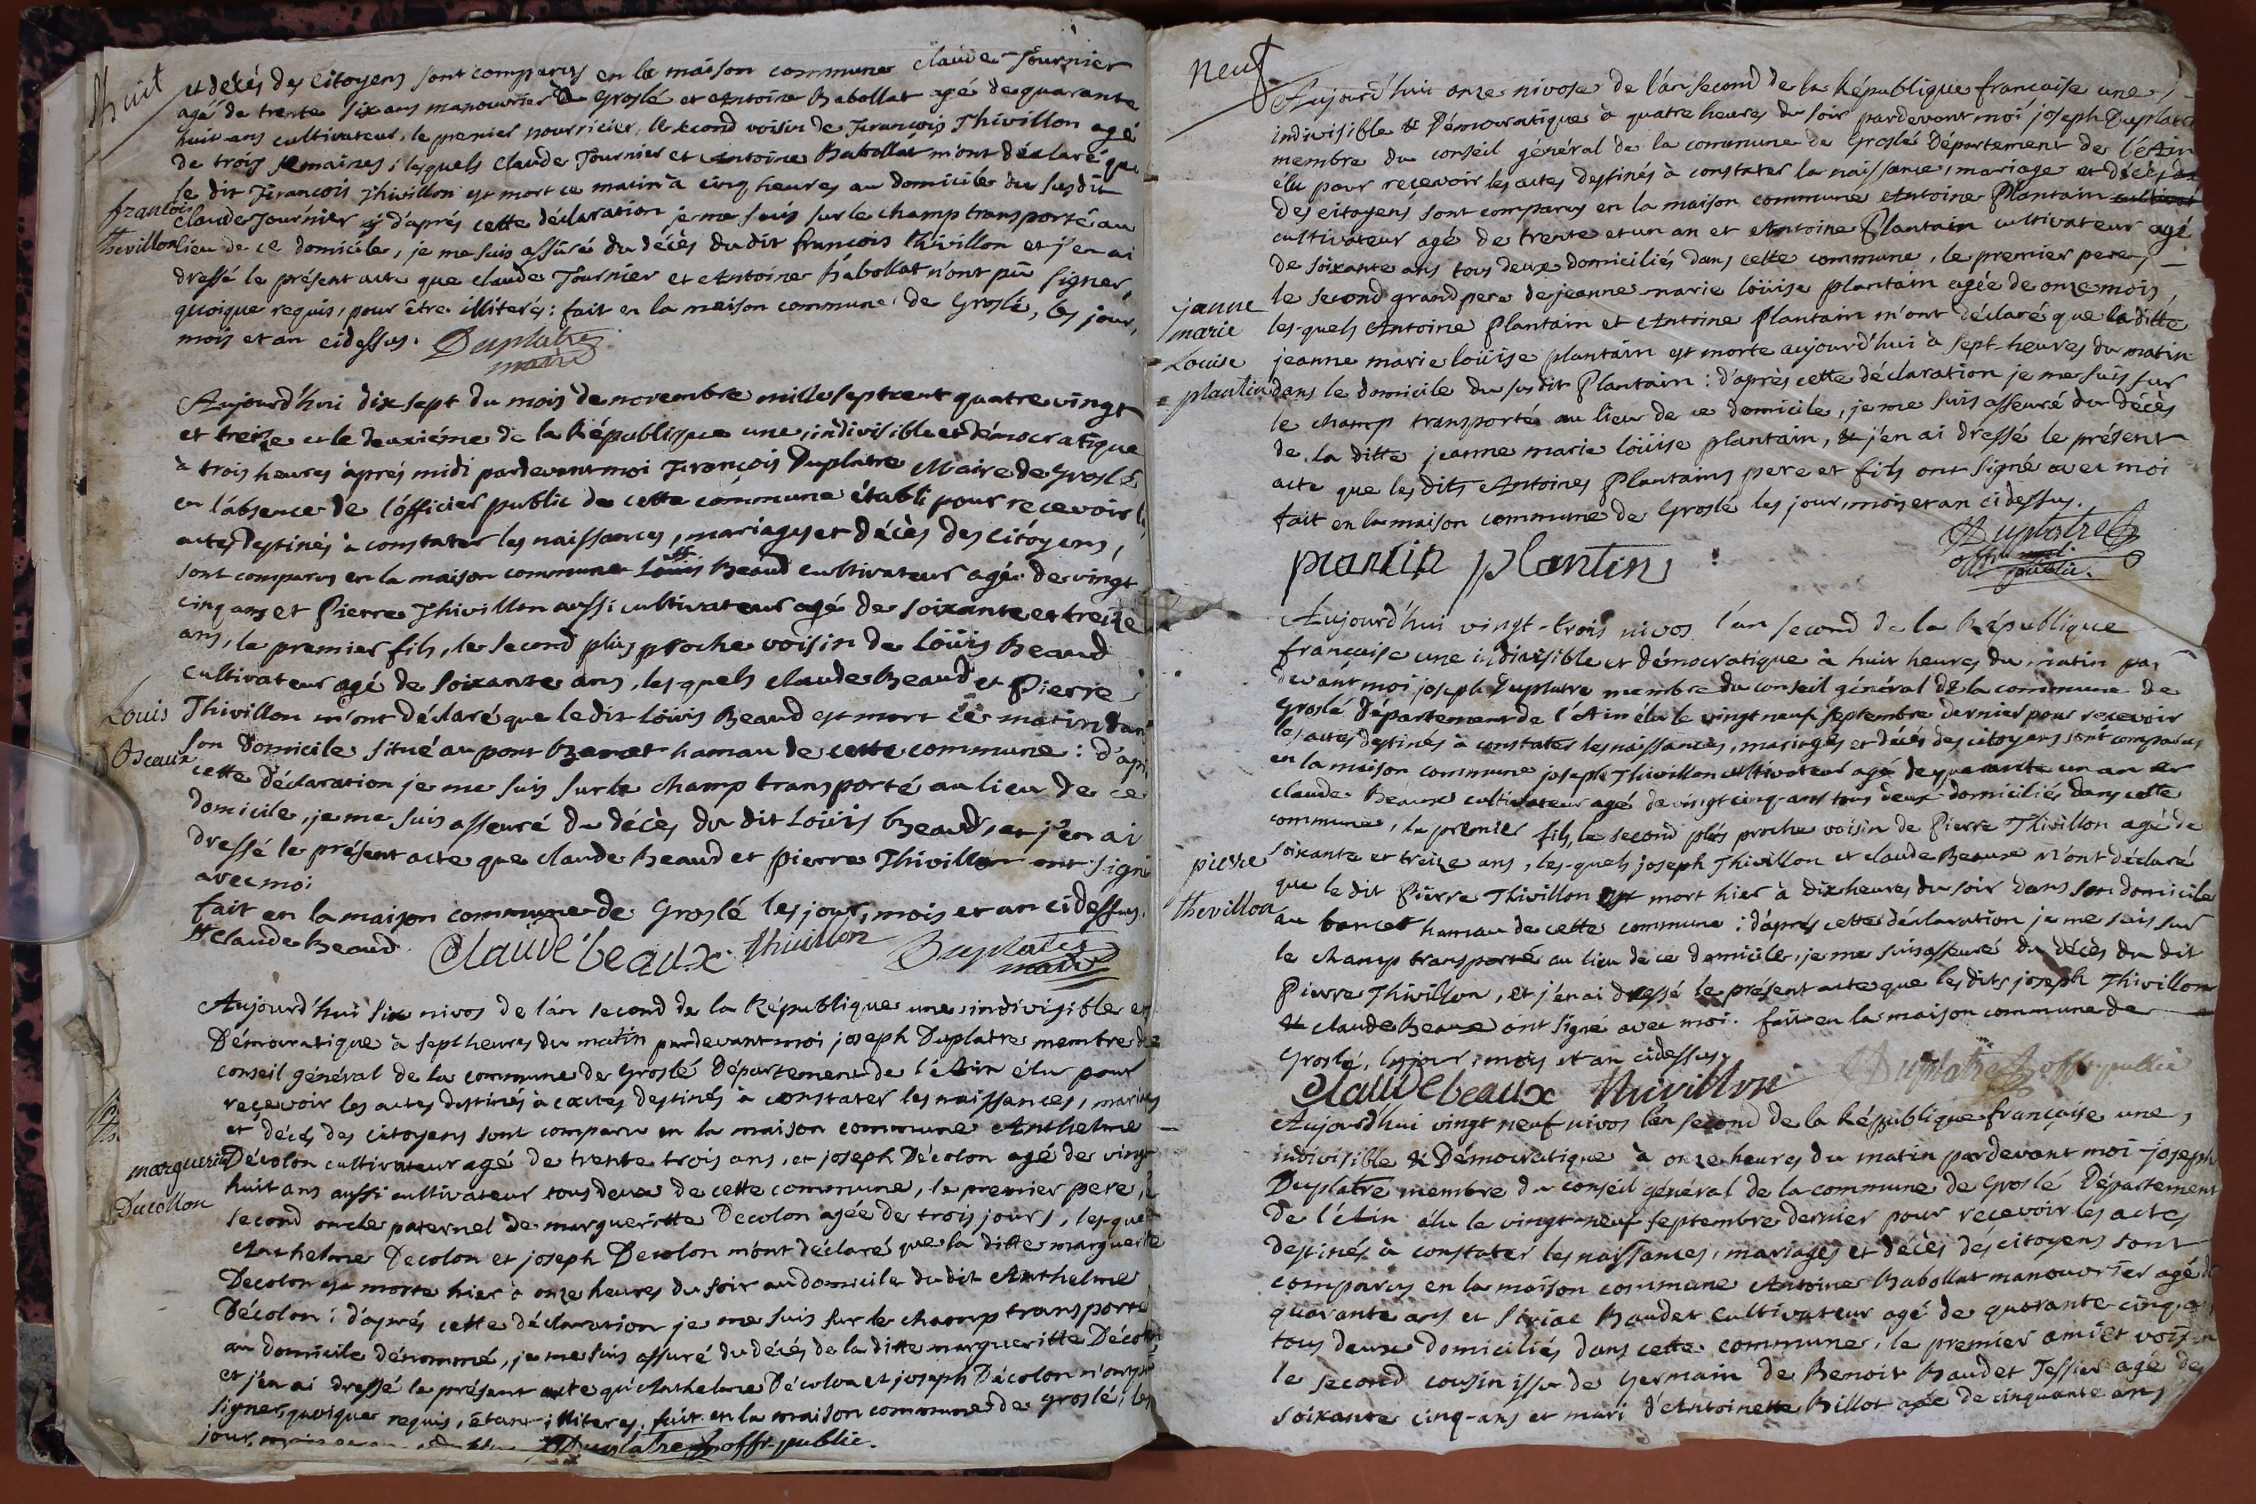 huit
et décés des citoyens sont comparus en la maison commune Claude Fournier
agé de trente six ans manouvrier à Groslé et Antoine Babollat agé de quarante
huit ans cultivateur, le premier nourricier, le second voisin de François Thivillon agé
de trois semaines ; lesquels Claude Fournier et Antoine Babollat m'ont déclaré que
le dit François Thivillon est mort ce matin à cinq heures au domicile du susdit
françois
Claude Fournier d'aprés cette déclaration je me suis sur le champ transporté au
thevillon
lieu de ce domicile, je me suis assuré du décès du dit françois thivillon et j'en ai
dressé le présent acte que claude Fournier et Antoine Babollat n'ont pu signer,
quoique requis, pour être illiterés : fait en la maison commune de Groslé, les jour,
mois et an cidessus. Duplatre
maire
Aujourd'hui dix sept du mois de novembre mille septcent quatre vingt
et treize et le deuxiéme de la République une, indivisible et démocratique
à trois heures après midi pardevant moi François Duplatre Maire de Groslé
en l'absence de l'officier public de cette commune établi pour recevoir les
actes destinés à constater les naissances, mariages et décès des citoyens,
sont comparus en la maison commune Louis Beaud cultivateur agé de vingt
cinq ans et Pierre Thivillon aussi cultivateur agé de soixante et treize
ans, le premier fils, le second plus proche voisin de Loüis Beaud
cultivateur agé de soixante ans, les quels claude Beaud et Pierre
Louis
Thivillon m'ont déclaré que le dit Loüis Beaud est mort ce matin dans
Beaux
son domicile situé au pont bancet hamau de cette commune : d'après
cette déclaration je me suis sur le champ transporté au lieu de ce
domicile, je me suis asseuré du décès du dit Loüis Beaud, et j'en ai
dressé le présent acte que claude Beaud et pierre Thivillon ont signé
avec moi
fait en la maison commune de Groslé les jour, mois et an cidessus.
claude Beaud Claude beaux thivillon Duplatre
maire
Aujourd'hui six nivos de l'an second de la République une, indivisible et
Démocratique à sept heures du matin pardevant moi joseph Duplatre membre du
conseil général de la commune de Groslé Département de l'Ain élu pour
recevoir les actes destinés à actes destinés à constater les naissances, mariages
et décés des citoyens sont comparu en la maison commune Anthelme
marguerite
Décolon cultivateur agé de trente trois ans, et joseph Décolon agé de vingt
Ducollon
huit ans aussi cultivateur tous deux de cette commune, le premier pere, le
second oncle paternel de margueritte Decolon agée de trois jours, lesquels
Anthelme Decolon et joseph Decolon m'ont déclaré que la ditte marguerite
Decolon est morte hier à onze heures du soir au domicile du dit Anthelme
Décolon : d'aprés cette déclaration je me suis sur le champ transporté
au domicile dénommé, je me suis assuré du décés de la ditte margueritte Décolon
et j'en ai dressé le présent acte qu'Anthelme Décolon et joseph Décolon n'ont pu
signer, quoique requis, étant illiterés, fait en la maison commune de groslé, les
jour, mois et an Duplatre offr. public.
neuf
Aujourd'hui onze nivose de l'an second de la République francaise une,
indivisible & Démocratique à quatre heures du soir pardevant moi joseph Duplatre
membre du conseil général de la commune de Groslé Département de l'Ain
élu pour recevoir les actes destinés à constater la naissance, mariage et décès
des citoyens sont comparus en la maison commune Antoine Plantain
cultivateur agé de trente et un an et Antoine Plantain cultivateur agé
de soixante ans tous deux domiciliés dans cette commune, le premier pere,
janne
le second grand pere de jeanne marie loüise plantain agée de onze mois,
marie
les-quels Antoine Plantain et Antoine Plantain m'ont déclaré que la ditte
Louise
jeanne marie loüise plantain est morte aujourd'hui à sept-heures du matin
plantin
dans le domicile du susdit Plantain : d'après cette déclaration je me suis sur
le champ transporté au lieu de ce domicile, je me suis asseuré du décès
de la ditte jeanne marie loüise plantain, & j'en ai dressé le présent
acte que les dits Antoines Plantains pere et fils ont signé avec moi
fait en la maison commune de Groslé les jour, mois et an cidessus.
plantin plantin Duplatre
offr.
public.
Aujourd'hui vingt-trois nivos l'an second de la République
française une indivisible et démocratique à huit heures du matin par
devant moi joseph Duplatre membre du conseil général de la commune de
Groslé Département de l'Ain élu le vingt neuf septembre dernier pour recevoir
les actes destinés à constater les naissances, mariages et décés des citoyens sont comparus
en la maison commune joseph Thivillon cultivateur agé de quarante un an et
claude Beaux cultivateur agé de vingt cinq-ans tous deux domiciliés dans cette
commune, le premier fils, le second plus proche voisin de Pierre Thivillon agé de
pierre
soixante et treize ans, les-quels joseph Thivillon et claude Beaux m'ont déclaré
que le dit Pierre Thivillon est mort hier à dix heures du soir dans son domicile
thevillon
au bancet hamau de cette commune : d'aprés cette déclaration je me suis sur
le champ transporté au lieu de ce domicile, je me suis asseuré du décès du dit
Pierre Thivillon, et j'en ai dressé le présent acte que les dits joseph Thivillon
& claude Beaux ont signé avec moi. fait en la maison commune de
Groslé, les jour, mois et an cidessus.
Claude beaux thivillon Duplatre offr. public
Aujourd'hui vingt neuf nivos l'an second de la République française une,
indivisible & Démocratique à onze heures du matin pardevant moi joseph
Duplatre membre du conseil général de la commune de Groslé Département
de l'Ain élu le vingt-neuf septembre dernier pour recevoir les actes
destinés à constater les naissances, mariages et décès des citoyens sont
comparus en la maison commune Antoine Babollat manouvrier agé de
quarante ans et Siriac Baudet cultivateur agé de quarante-cinq ans
tous deux domiciliés dans cette commune, le premier ami et voisin
le second cousin issu de Germain de Benoit Baudet Tessier agé de
soixante cinq-ans et mari d'Antoinette Billot agée de cinquante ans